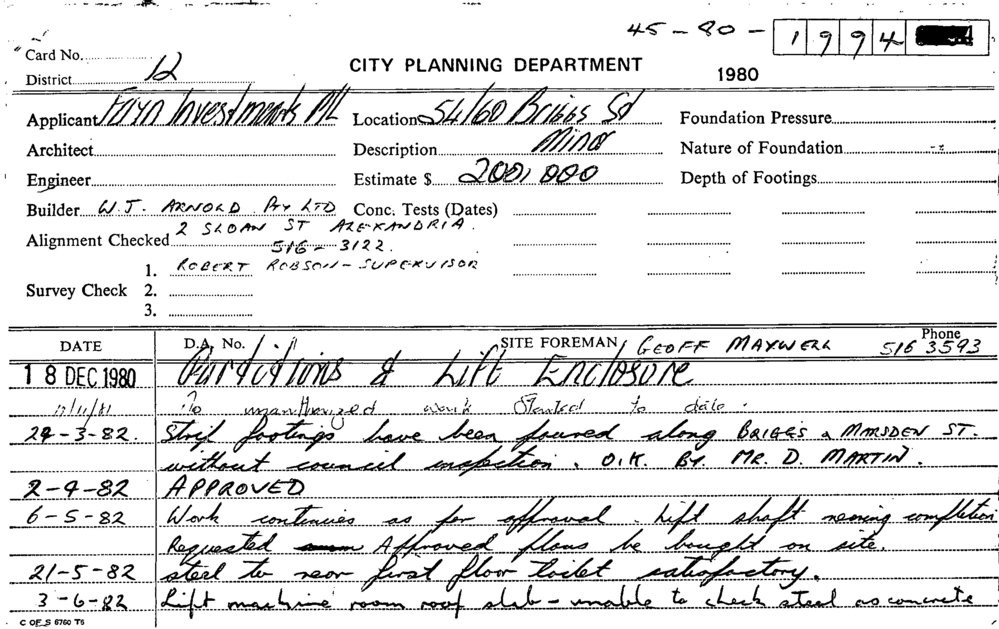 45-80- 1994
Card No.
District 12
CITY PLANNING DEPARTMENT 1980
Applicant Investments P/L Location 54/60 Briggs St Foundation Pressure
Architect Description Minor Nature of Foundation
Engineer Estimate $ 200,000 Depth of Footings
Builder W.J. ARNOLD PTY LTD Conc. Tests (Dates)
2 SLOAN ST ALEXANDRIA.
Alignment Checked 516-3122.
1. ROBERT ROBSON-SUPERVISOR
Survey Check 2.
3.
DATE D.A. No. SITE FOREMAN GEOFF MAXWELL Phone 516 3593
18 DEC 1980 Partitions & Lift Enclosure
17/11/81 No unauthorized work started to date.
24-3-82. Strip footings have been poured along BRIGGS & MARSDEN ST.
without council inspection. O.K. BY. MR. D. MARTIN.
2-4-82 APPROVED
6-5-82 Work continues as per approval. Lift shaft nearing completion
Requested Approved plans be brought on site.
21-5-82 steel to rear first floor toilet satisfactory.
3-6-82 Lift machine room roof slab - unable to check steel as concrete
C OF S 6760 T5